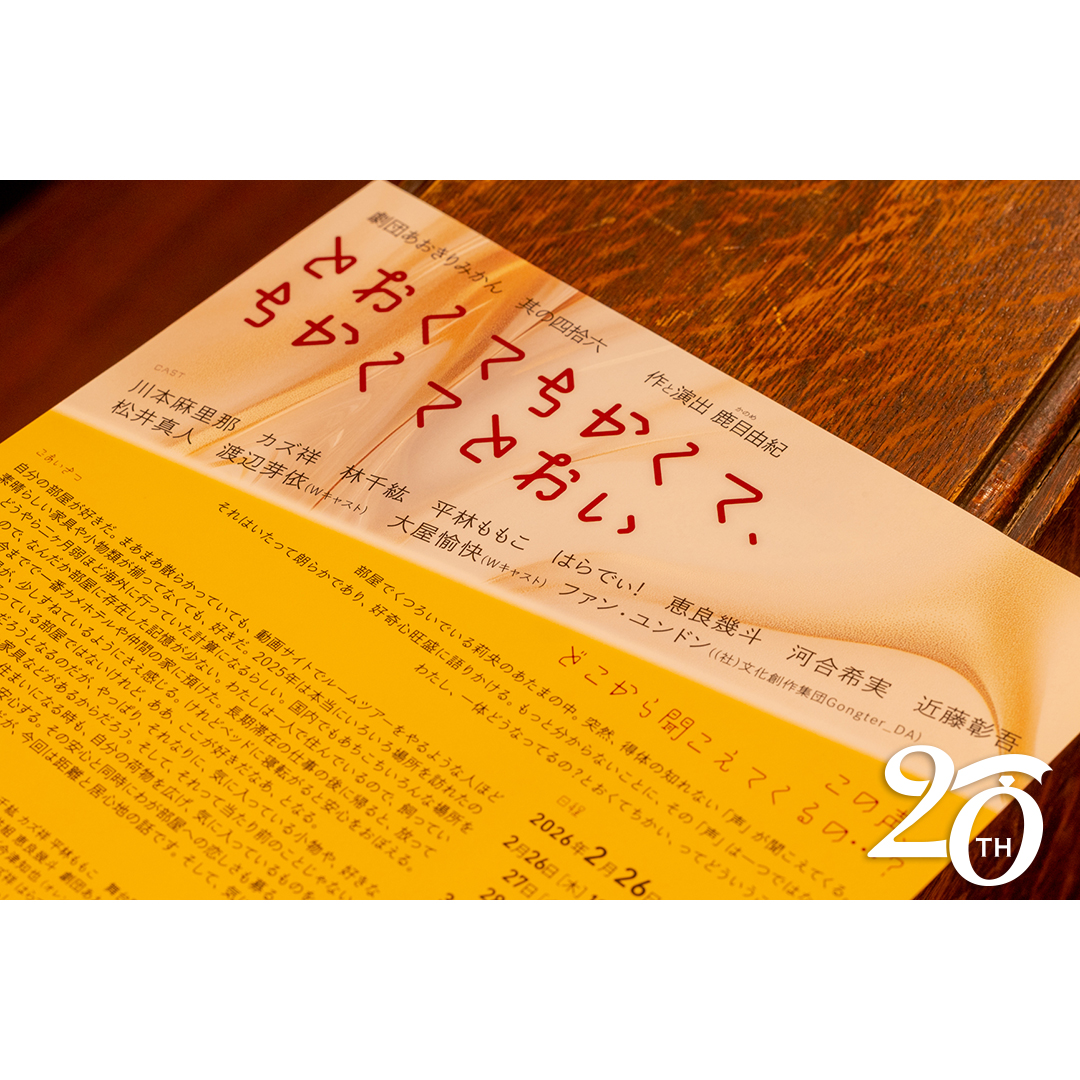 劇団あおきりみかん 其の四拾六
作と演出 鹿目由紀
かのめ
とおくてちかくて、
ちかくてとおい
CAST
川本麻里那 カズ祥 林千紘 平林ももこ はらでぃ! 恵良幾斗 河合希実 近藤彰吾
松井真人 渡辺芽依(Wキャスト) 大屋愉快(Wキャスト) ファン・ユンドン((社)文化創作集団Gongter_DA)
この声
どこから聞こえてくるの…?
部屋でくつろいでいる莉央のあたまの中。突然、得体の知れない「声」が聞こえてくる。
それはいたって朗らかであり、好奇心旺盛に語りかける。もっと分からないことに、その「声」は一つでは
わたし、一体どうなってるの?とおくてちかい、ってどういうこ
日程
2026年2月26
2月26日(木)
27日
28
ごあいさつ
自分の部屋が好きだ。まあまあ散らかっていても、動画サイトでルームツアーをやるような人ほど
素晴らしい家具や小物類が揃ってなくても、好きだ。2025年は本当にいろいろ場所を訪れたの
どうやら二ヶ月弱ほど海外に行っていた計算になるらしい。国内でもあちこちいろんな場所を
ので、なんだか部屋に存在した記憶が少ない。わたしは一人で住んでいるので、飼ってい
今までで一番カメホテルや仲間の家に預けた。長期滞在の仕事の後に帰ると、放って
が、少しすねているようにさえ感じる。けれどベッドに寝転がると安心をおぼえる。
っている部屋ではないけれど、ああ、ここが好きだなあ、となる。
だろうとなるのだが、やっぱり、それなりに、気に入っている小物や、好きな
家具などがあるからだろう。そして、それって当たり前の
住まいになる時も、自分の荷物を広げ、気に入っているものを
安心する。その安心と同時にわが部屋への恋しさも募る
が、今回は距離と居心地の話です。そして、気に
20TH